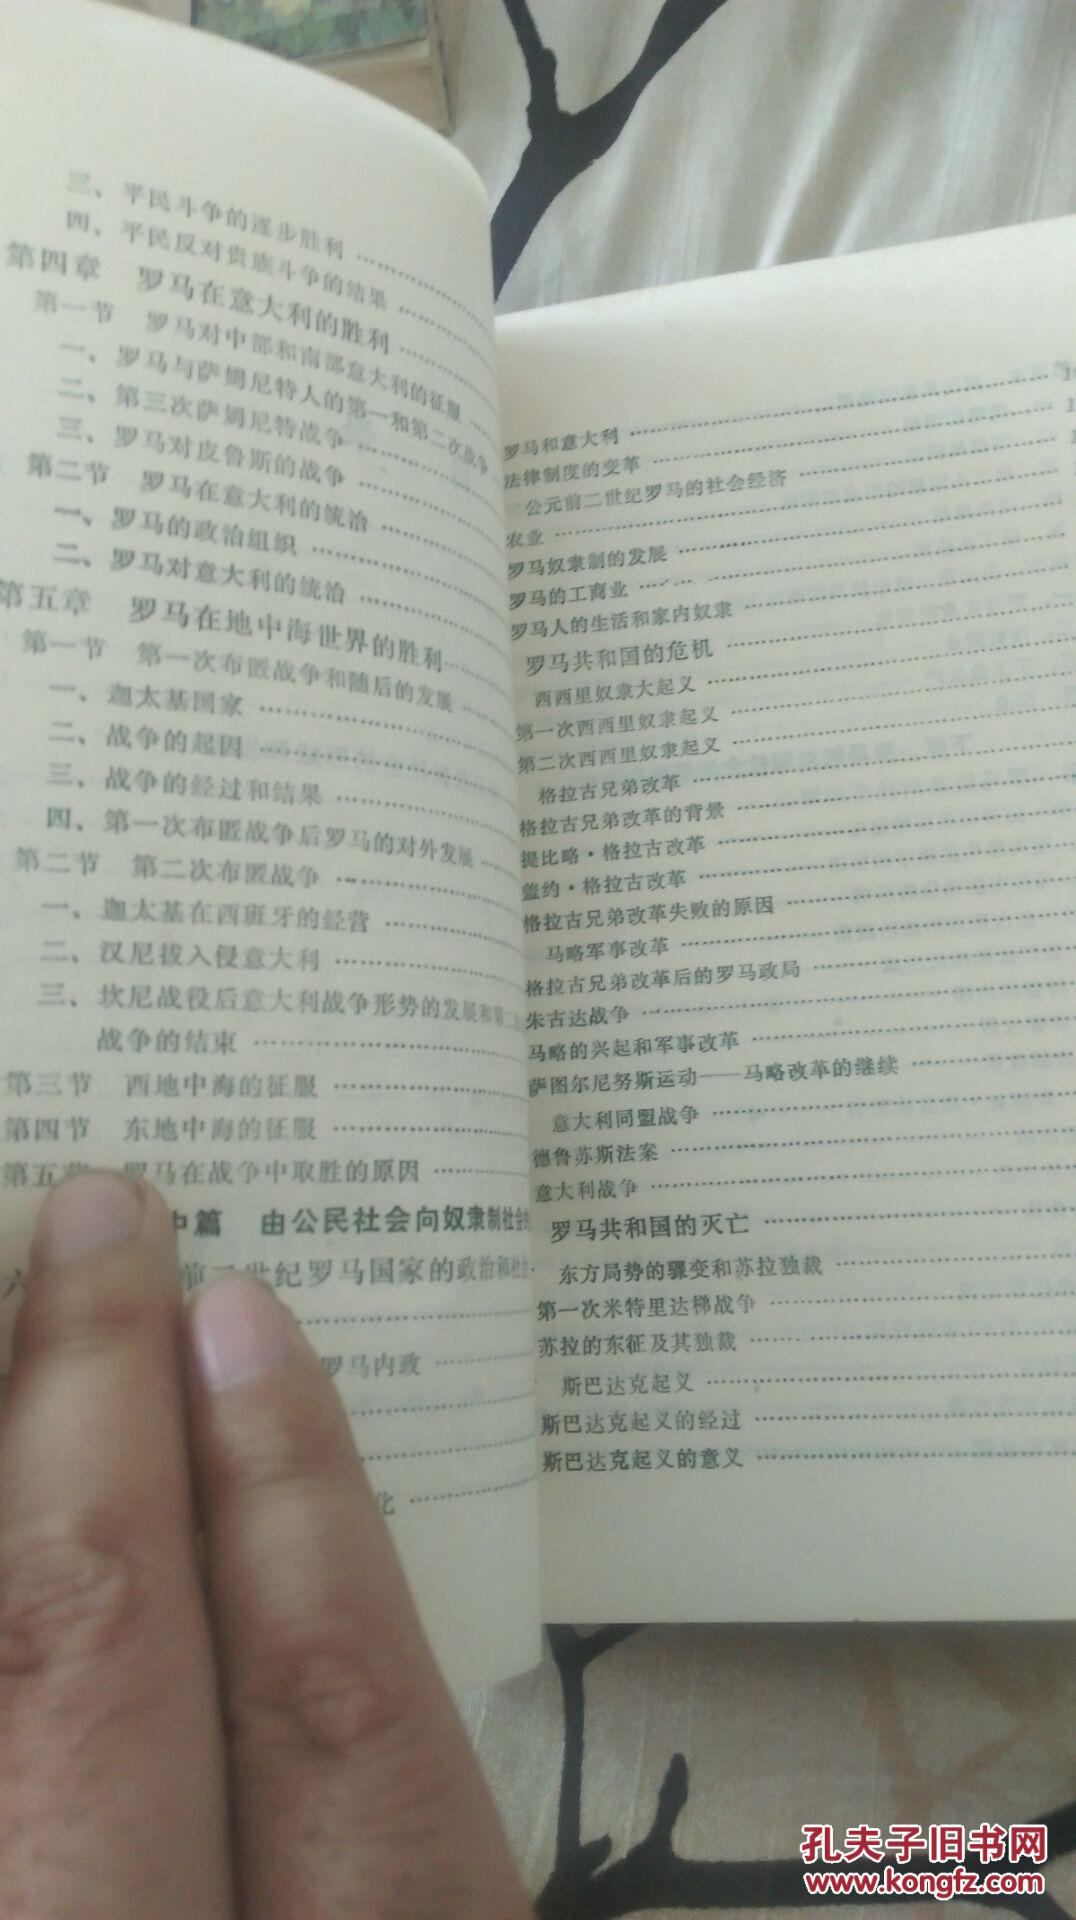 三、平民斗争的逐步胜利
四、平民反对贵族斗争的结果
第四章 罗马在意大利的胜利
第一节 罗马对中部和南部意大利的征服
一、罗马与萨姆尼特人的第一和第二次战争
二、第三次萨姆尼特战争
三、罗马对皮鲁斯的战争
第二节 罗马在意大利的统治
一、罗马的政治组织
二、罗马对意大利的统治
第五章 罗马在地中海世界的胜利
第一节 第一次布匿战争和随后的发展
一、迦太基国家
二、战争的起因
三、战争的经过和结果
四、第一次布匿战争后罗马的对外发展
第二节 第二次布匿战争
一、迦太基在西班牙的经营
二、汉尼拔入侵意大利
三、坎尼战役后意大利战争形势的发展和第二
战争的结束
第三节 西地中海的征服
第四节 东地中海的征服
第五 罗马在战争中取胜的原因
中篇 由公民社会向奴隶制社会
六 前二世纪罗马国家的政治和社
罗马内政
化
罗马和意大利
法律制度的变革
公元前二世纪罗马的社会经济
农业
罗马奴隶制的发展
罗马的工商业
罗马人的生活和家内奴隶
罗马共和国的危机
西西里奴隶大起义
第一次西西里奴隶起义
第二次西西里奴隶起义
格拉古兄弟改革
格拉古兄弟改革的背景
提比略·格拉古改革
盖约·格拉古改革
格拉古兄弟改革失败的原因
马略军事改革
格拉古兄弟改革后的罗马政局
朱古达战争
马略的兴起和军事改革
萨图尔尼努斯运动——马略改革的继续
意大利同盟战争
德鲁苏斯法案
意大利战争
罗马共和国的灭亡
东方局势的骤变和苏拉独裁
第一次米特里达梯战争
苏拉的东征及其独裁
斯巴达克起义
斯巴达克起义的经过
斯巴达克起义的意义
孔夫子旧书网
www.kongfz.com